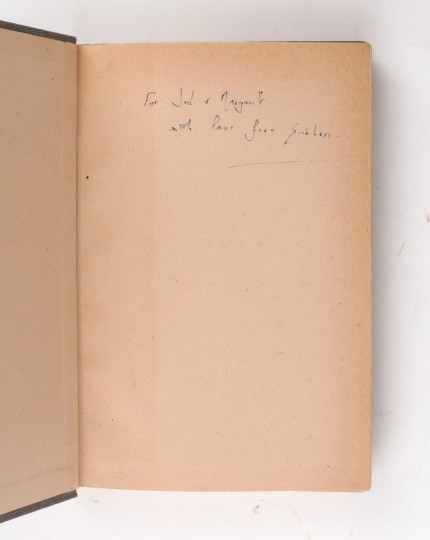 For Jack & Margaret
with love from Graham